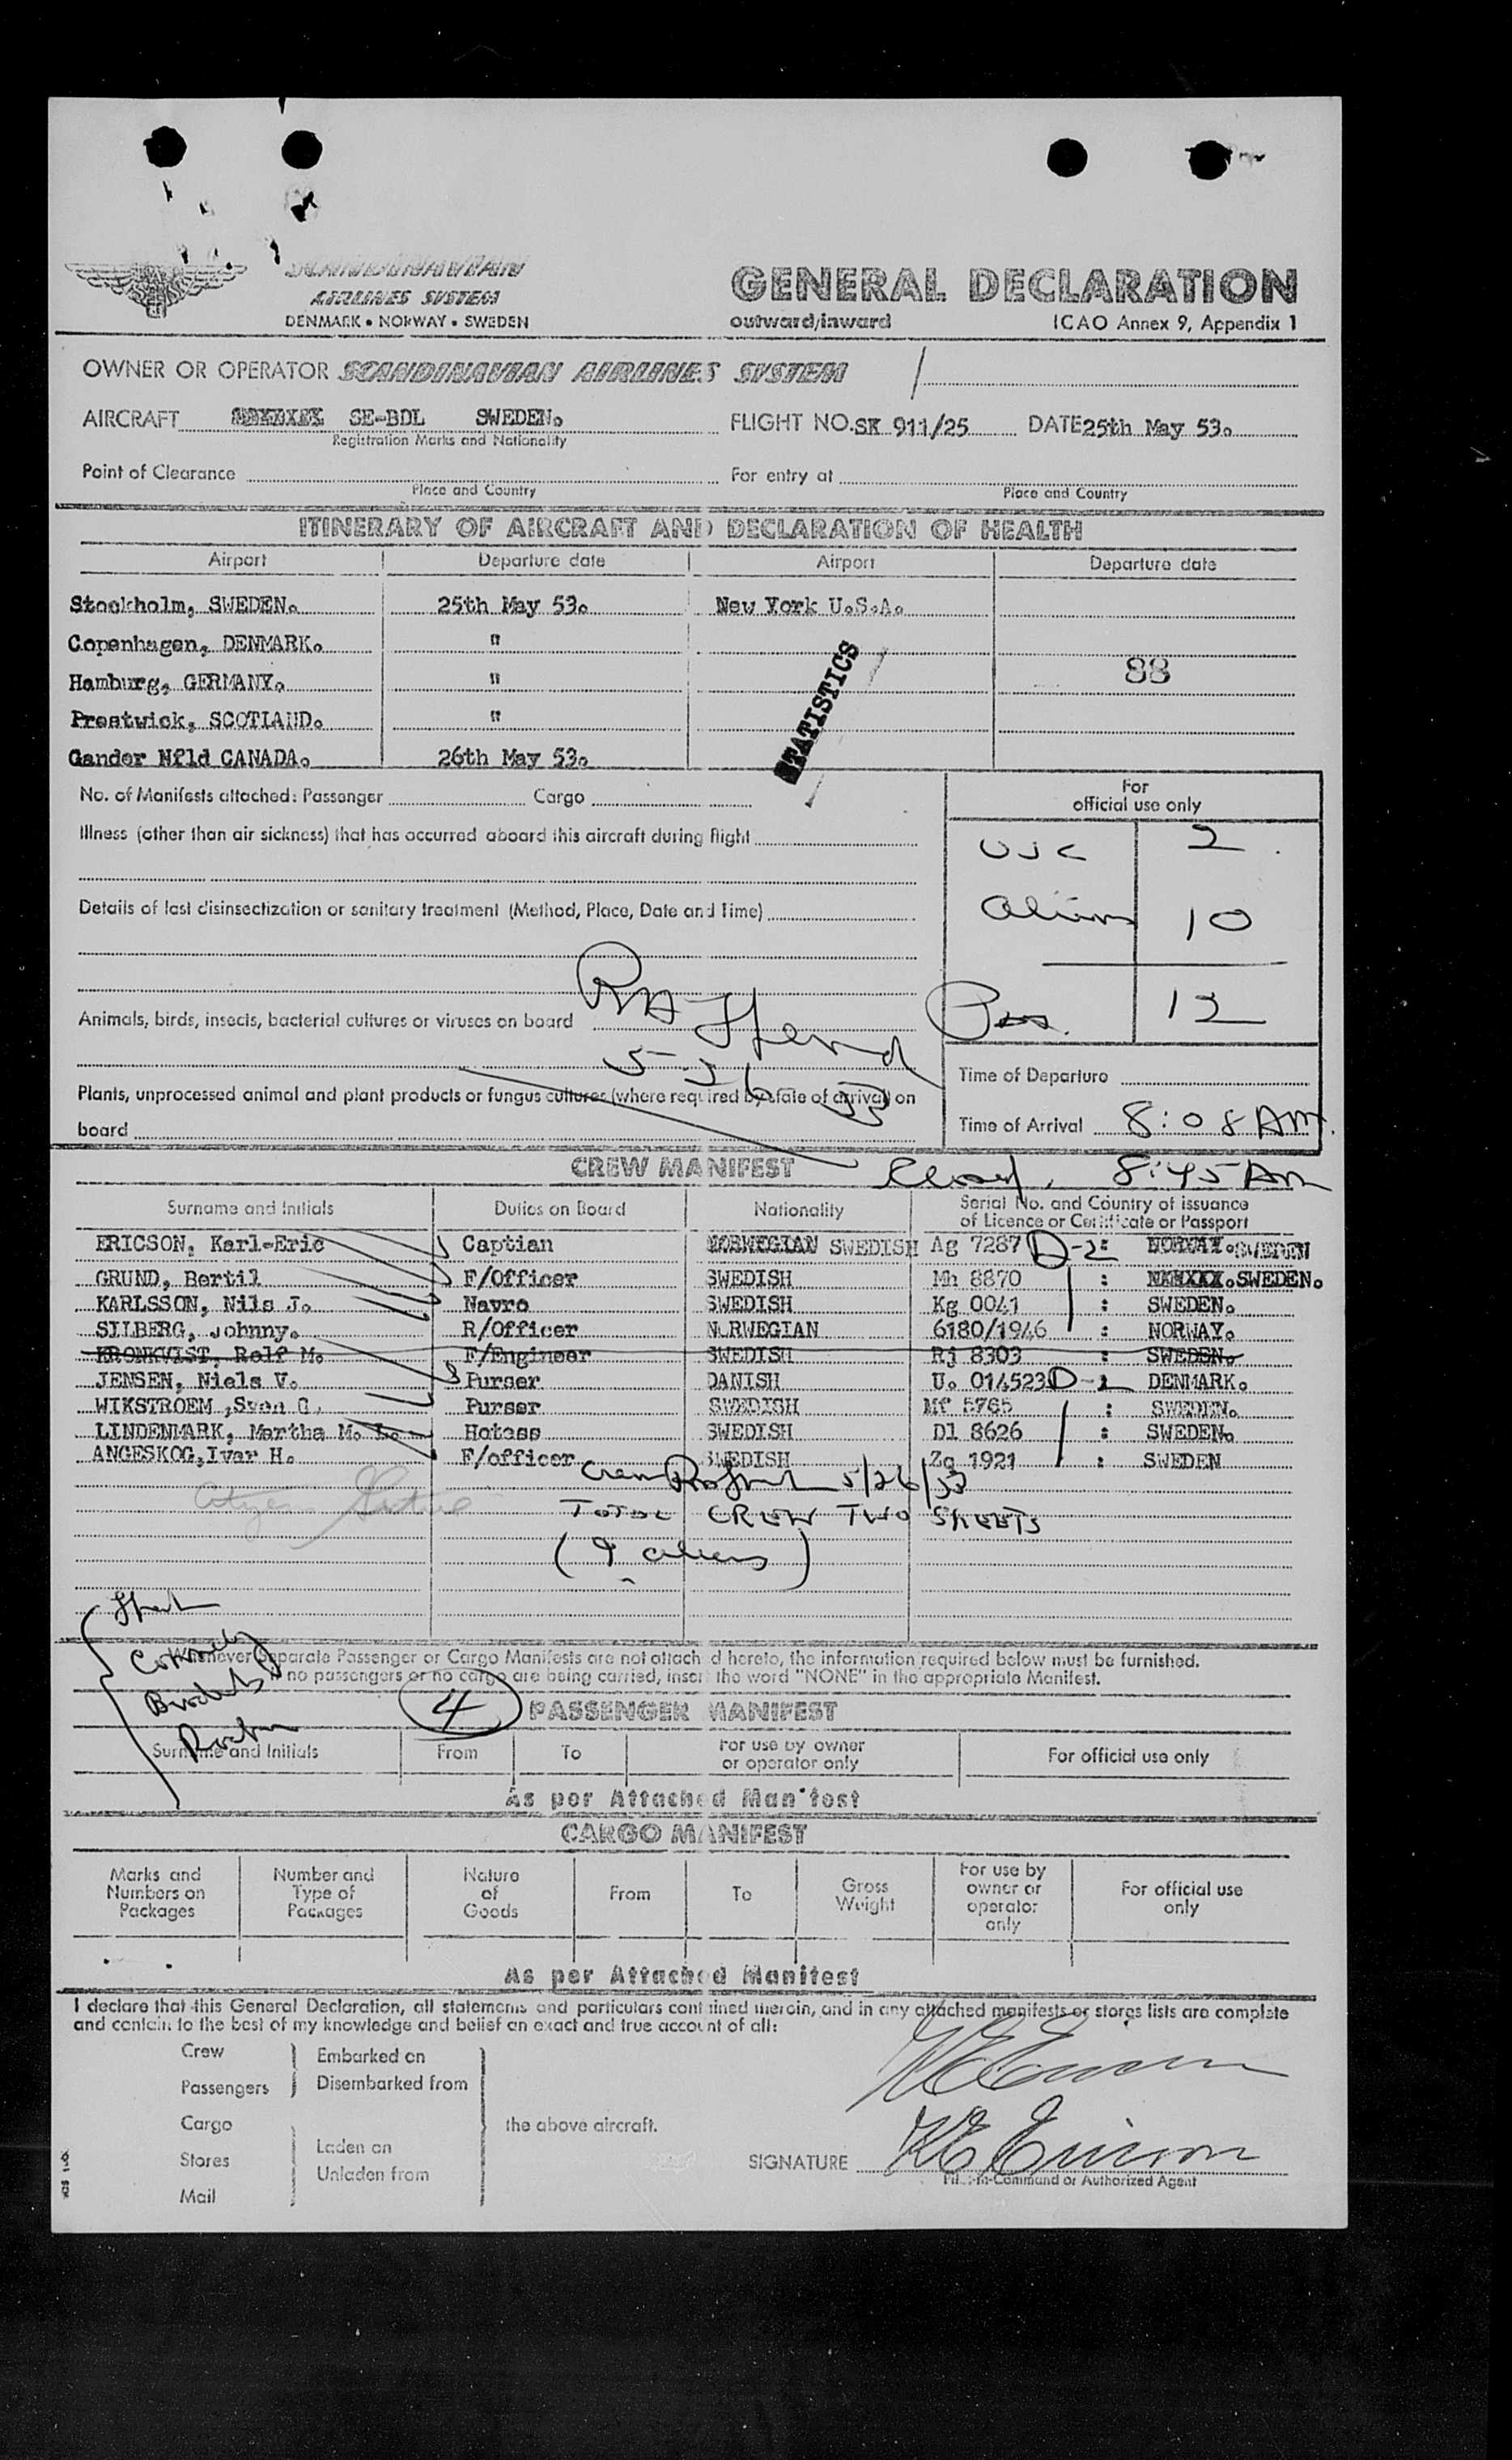 SCANDINAVIAN
AIRLINES SYSTEM
DENMARK • NORWAY • SWEDEN
GENERAL DECLARATION
outward/inward
ICAO Annex 9, Appendix 1
OWNER OR OPERATOR SCANDINAVIAN AIRLINES SYSTEM
AIRCRAFT SE-BDL SWEDEN.
FLIGHT NO. SK 911/25 DATE 25th May 53.
Registration Marks and Nationality
Point of Clearance
For entry at
Place and Country
Place and Country
ITINERARY OF AIRCRAFT AND DECLARATION OF HEALTH
Airport Departure date Airport Departure date
Stockholm, SWEDEN. 25th May 53. New York U.S.A.
Copenhagen, DENMARK. "
88
Hamburg, GERMANY. "
Prestwick, SCOTLAND. "
STATISTICS
Gander Nfld CANADA. 26th May 53.
No. of Manifests attached: Passenger Cargo
For
official use only
Illness (other than air sickness) that has occurred aboard this aircraft during flight
USC 2
Details of last disinsectization or sanitary treatment (Method, Place, Date and Time)
Aliens 10
Pass. 12
Animals, birds, insects, bacterial cultures or viruses on board
5-26-53
Time of Departure
Plants, unprocessed animal and plant products or fungus cultures (where required by state of arrival) on
board
Time of Arrival 8:08 AM.
8:45 AM
CREW MANIFEST
Surname and Initials Duties on Board Nationality Serial No. and Country of issuance
of Licence or Certificate or Passport
ERICSON, Karl-Eric Captian NORWEGIAN SWEDISH Ag 7287 D-2 : NORWAY. SWEDEN
GRUND, Bertil F/Officer SWEDISH Mh 8870 : SWEDEN.
KARLSSON, Nils J. Navro SWEDISH Kg 0041 : SWEDEN.
SILBERG, Johnny. R/Officer NORWEGIAN 6180/1946 : NORWAY.
KRONKVIST, Rolf M. F/Engineer SWEDISH Rj 8303 : SWEDEN.
JENSEN, Niels V. Purser DANISH U. 014523 D-2 DENMARK.
WIKSTROEM ,Sven G, Purser SWEDISH Mf 5765 : SWEDEN.
LINDENMARK, Martha M. L. Hotess SWEDISH Dl 8626 : SWEDEN.
ANGESKOG,Ivar H. F/officer SWEDISH Zg 1921 : SWEDEN
Crew 5/26/53
TOTAL CREW TWO SHEETS
(9 aliens)
Whenever Separate Passenger or Cargo Manifests are not attached hereto, the information required below must be furnished.
no passengers or no cargo are being carried, insert the word "NONE" in the appropriate Manifest.
4
PASSENGER MANIFEST
Surname and Initials From To For use by owner
or operator only
For official use only
As per Attached Manifest
CARGO MANIFEST
Marks and
Numbers on
Packages
Number and
Type of
Packages
Nature
of
Goods
From
To
Gross
Weight
For use by
owner or
operator
only
For official use
only
As per Attached Manifest
I declare that this General Declaration, all statements and particulars contained therein, and in any attached manifests or stores lists are complete
and contain to the best of my knowledge and belief an exact and true account of all:
Crew Embarked on
Passengers Disembarked from
Cargo the above aircraft.
Stores Laden on
Unladen from
Mail
SIGNATURE K E Ericson
Pilot-in-Command or Authorized Agent